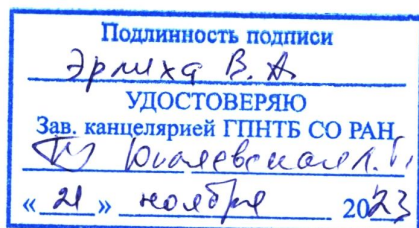 Подлинность подписи
Эрлиха В. А.
УДОСТОВЕРЯЮ
Зав. канцелярией ГПНТБ СО РАН
«21» ноября 2023